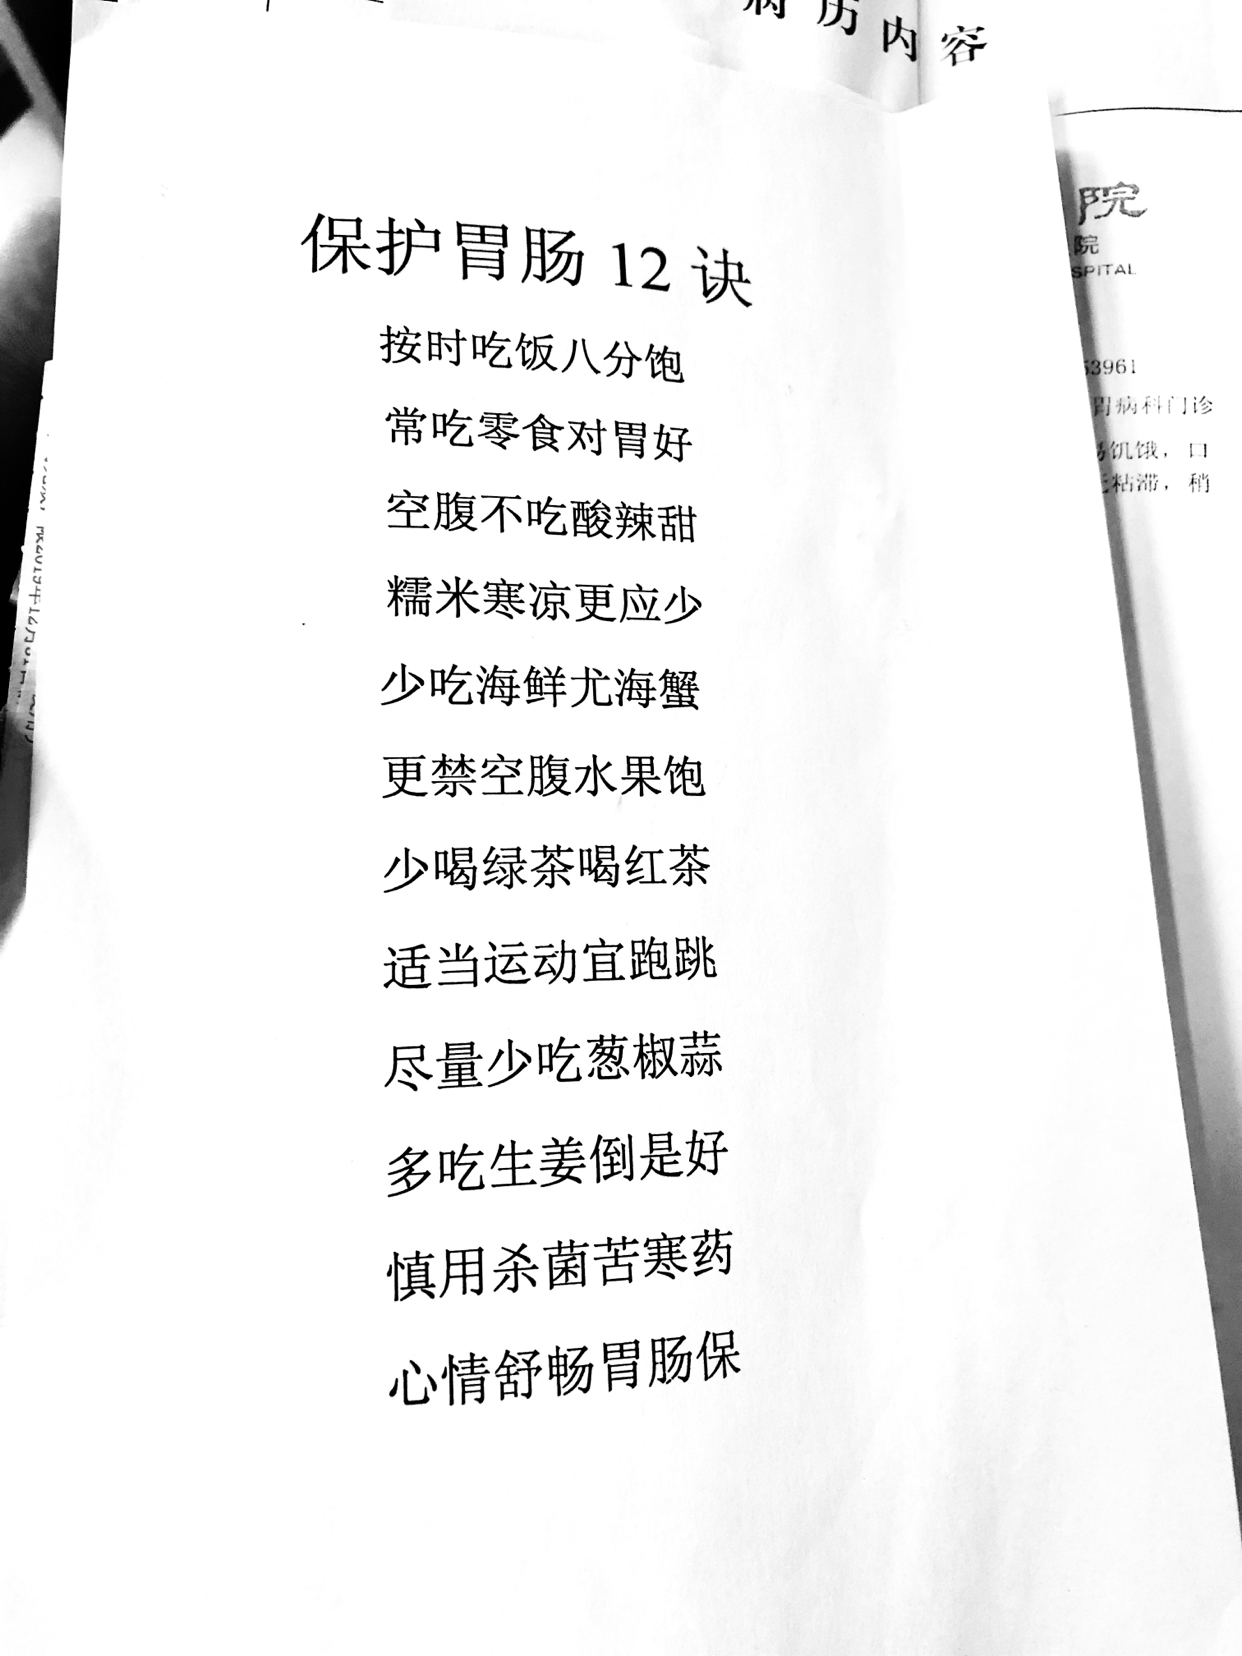 病历内容
保护胃肠 12 诀
按时吃饭八分饱
常吃零食对胃好
空腹不吃酸辣甜
糯米寒凉更应少
少吃海鲜尤海蟹
更禁空腹水果饱
少喝绿茶喝红茶
适当运动宜跑跳
尽量少吃葱椒蒜
多吃生姜倒是好
慎用杀菌苦寒药
心情舒畅胃肠保
院
院
SPITAL
53961
胃病科门诊
易饥饿，口
粘滞，稍